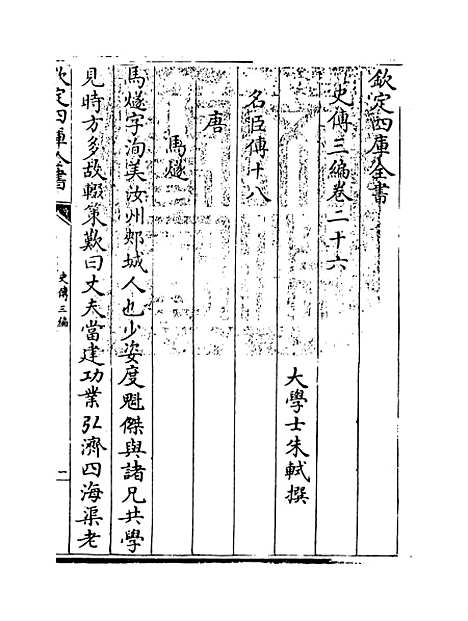 欽定四庫全書
史傳三編卷二十六
大學士朱軾撰
名臣傳十八
唐
馬燧
馬燧字洵美汝州郟城人也少姿度魁傑與諸兄共學
見時方多故輟策歎曰丈夫當建功業弘濟四海渠老
欽定四庫全書
史傳三編